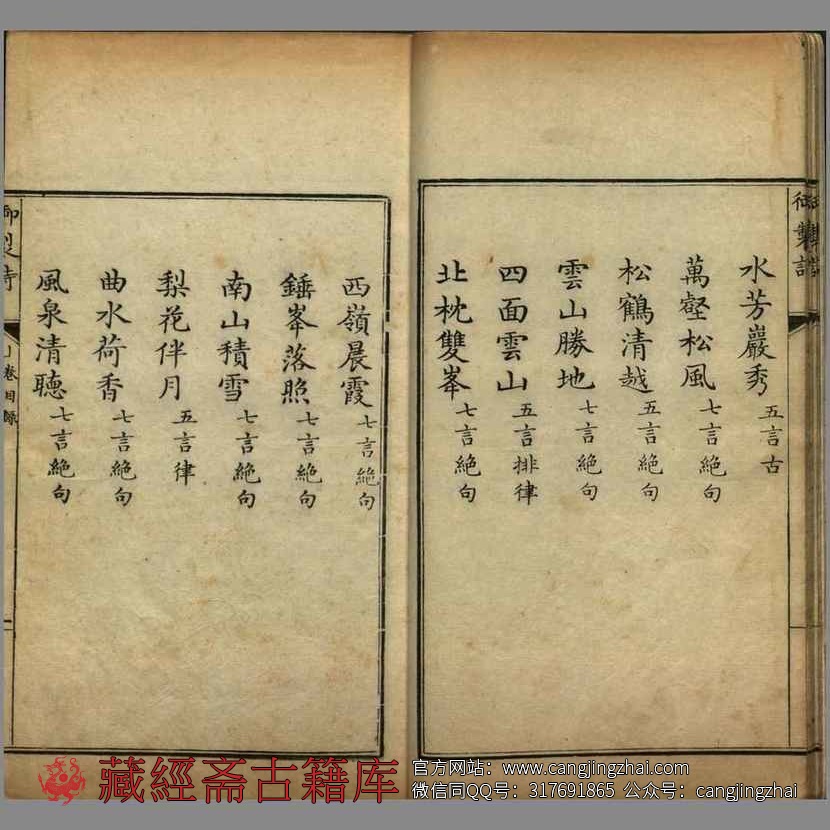 御製詩
水芳巖秀 五言古
萬壑松風 七言絶句
松鶴清越 五言絶句
雲山勝地 七言絶句
四面雲山 五言排律
北枕雙峯 七言絶句
西嶺晨霞 七言絶句
錘峯落照 七言絶句
南山積雪 七言絶句
梨花伴月 五言律
曲水荷香 七言絶句
風泉清聽 七言絶句
御製詩
卷目録
藏經斋古籍库
官方网站：www.cangjingzhai.com
微信同QQ号：317691865 公众号：cangjingzhai